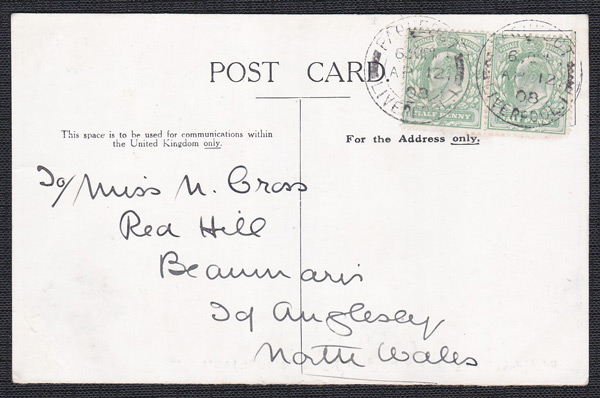 POST CARD.
This space is to be used for communications within
the United Kingdom only.
For the Address only.
6
AP 12
08
LIVERPOOL
HALF PENNY
6
AP 12
08
LIVERPOOL
To/ Miss N. Cross
Red Hill
Beaumaris
Id Anglesey
North Wales